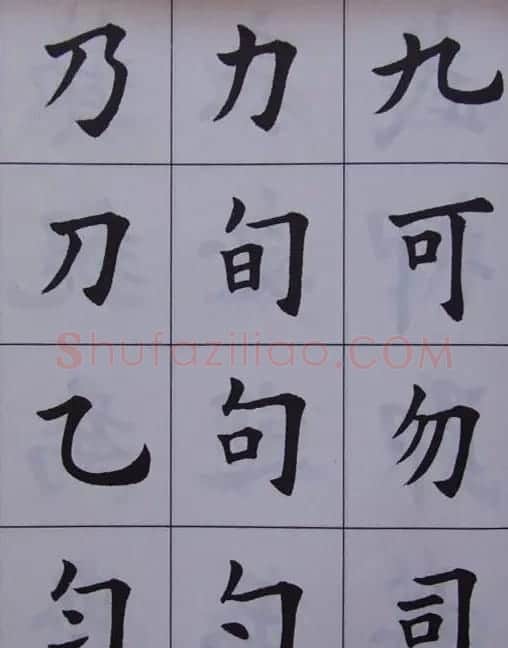 乃 力 九
刀 旬 可
Shufaziliao.COM
乙 句 勿
匀 勺 司